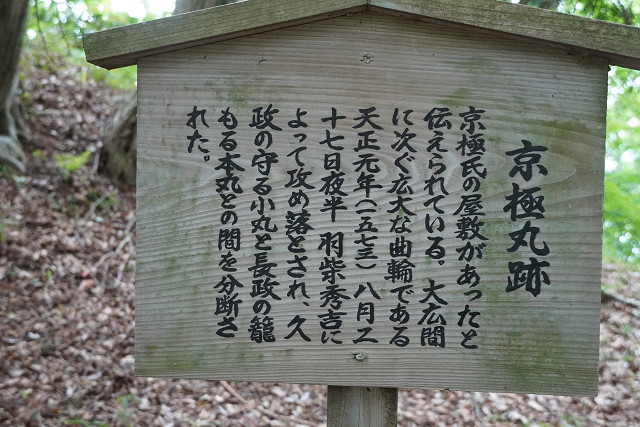 京極丸跡
京極氏の屋敷があったと
伝えられている。大広間
に次ぐ広大な曲輪である
天正元年(一五七三)八月二
十七日夜半 羽柴秀吉に
よって攻め落とされ、久
政の守る小丸と長政の籠
もる本丸との間を分断さ
れた。